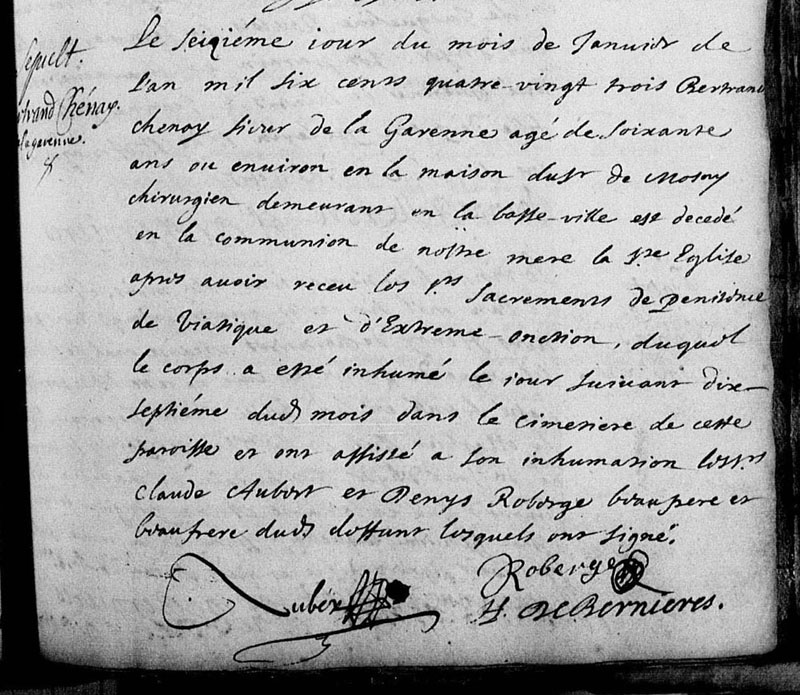 Sepult.
Bertrand Chénay
la garenne.
Le seiziéme iour du mois de Januier de
l'an mil six cents quatre-vingt trois Bertrand
chenay sieur de la Garenne agé de soixante
ans ou enuiron en la maison du sr de Mosny
chirurgien demeurant en la basse-ville est decedé
en la communion de nostre mere la ste Eglise
apres auoir receu les sts Sacrements de Penitence
de Viatique et d'Extreme-onction, duquel
le corps a esté inhumé le iour suiuant dix-
septiéme dud mois dans le cimetiere de cette
paroisse et ont assisté a son inhumation les srs
Claude Aubert et Denys Roberge beaupere et
beaufrere dud deffunt lesquels ont signé.
Auber
Roberge
H. DeBernieres.